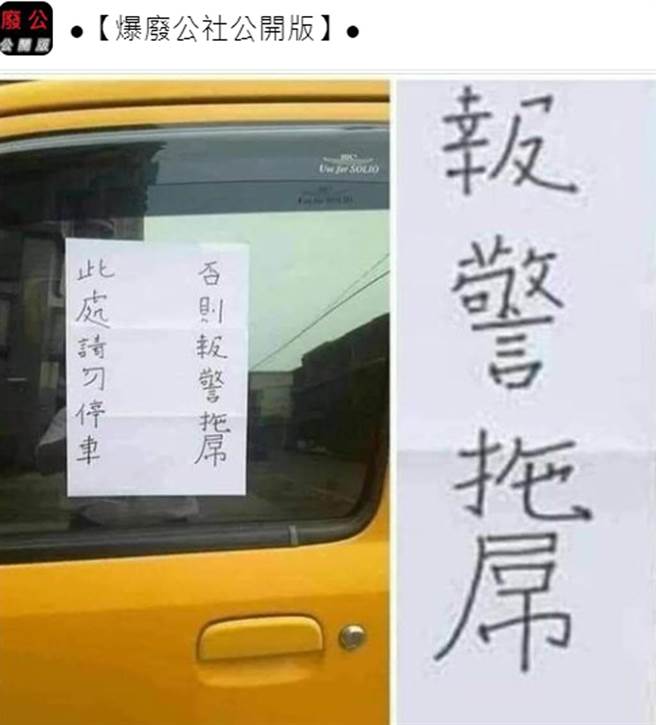 廢公
公開版
●【爆廢公社公開版】●
Use for SOLIO
此處請勿停車
否則報警拖屌
報警拖屌